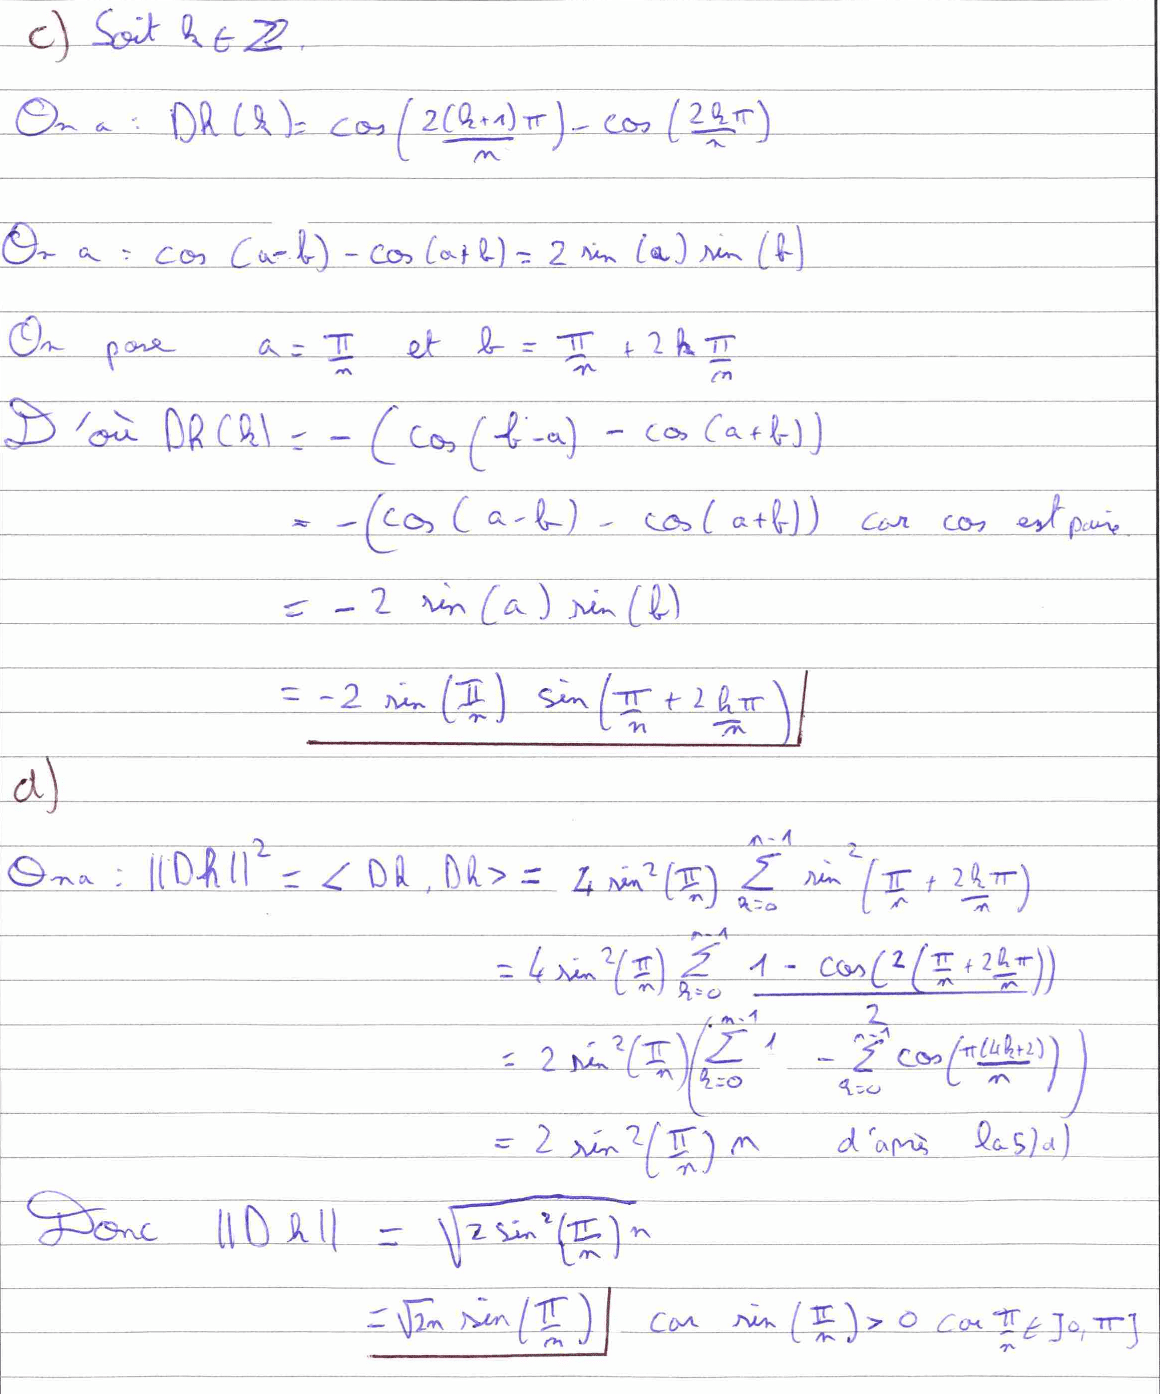 c) Soit k ∈ ℤ.
On a : Dh(k) = cos(2(k+1)π/n) - cos(2kπ/n)
On a : cos(a-b) - cos(a+b) = 2 sin(a) sin(b)
On pose a = π/n et b = π/n + 2kπ/n
D'où Dh(k) = -(cos(b-a) - cos(a+b))
= -(cos(a-b) - cos(a+b)) car cos est paire.
= -2 sin(a) sin(b)
= -2 sin(π/n) sin(π/n + 2kπ/n)
d)
On a : ||Dh||² = <Dh, Dh> = 4 sin²(π/n) ∑_{k=0}^{n-1} sin²(π/n + 2kπ/n)
= 4 sin²(π/n) ∑_{k=0}^{n-1} (1 - cos(2(π/n + 2kπ/n)))/2
= 2 sin²(π/n) (∑_{k=0}^{n-1} 1 - ∑_{k=0}^{n-1} cos(π(4k+2)/n))
= 2 sin²(π/n) n d'après la 5)a)
Donc ||Dh|| = √(2 sin²(π/n) n)
= √2n sin(π/n) car sin(π/n) > 0 car π/n ∈ ]0, π]